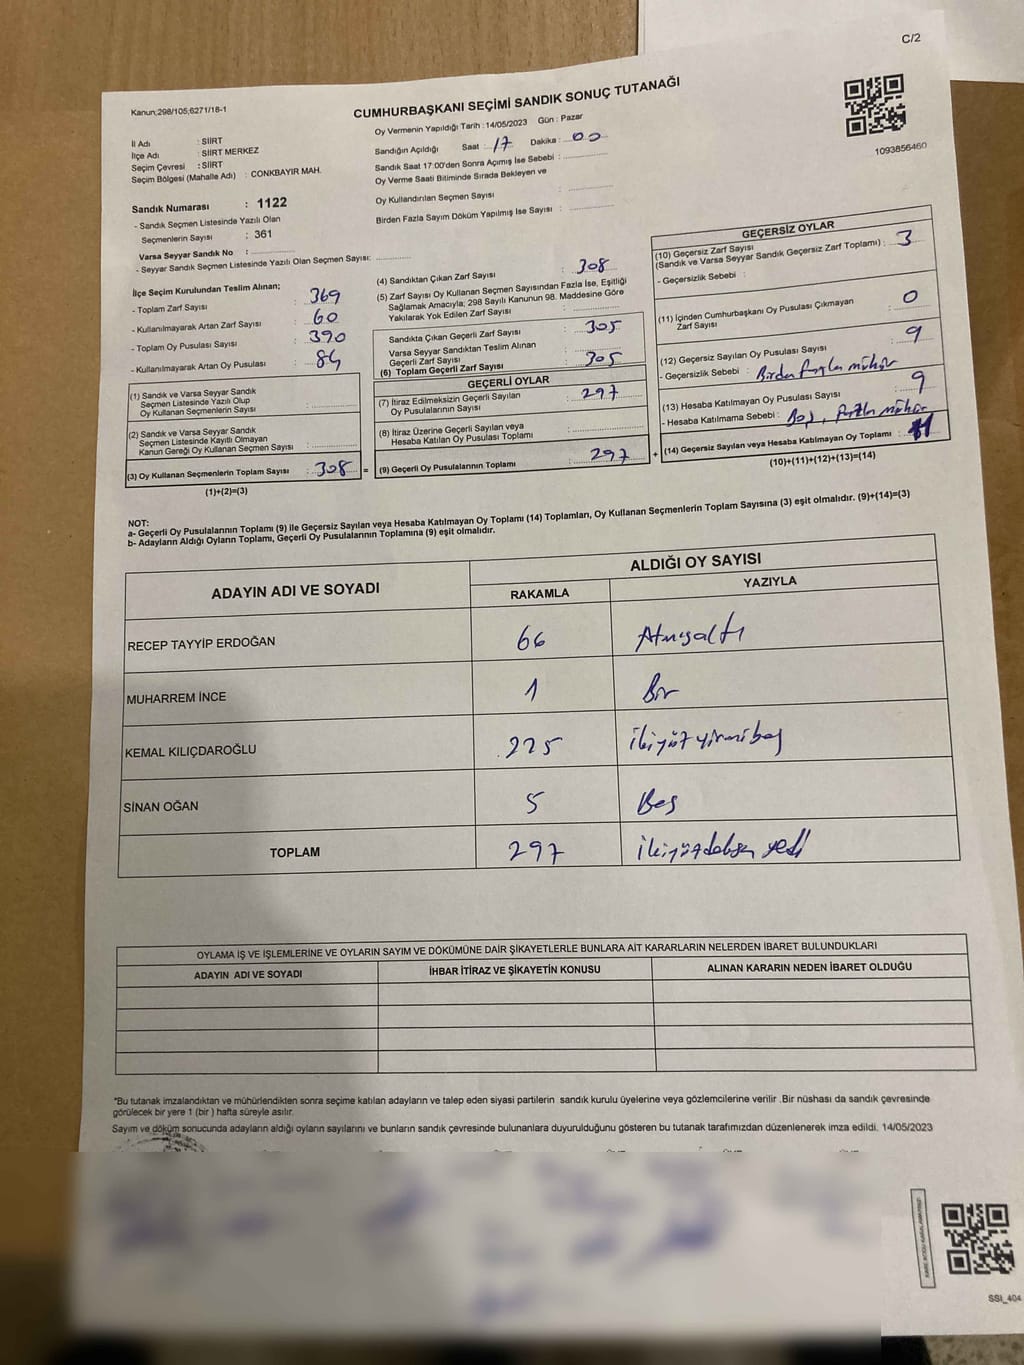 C/2
Kanun;298/105;6271/18-1
CUMHURBAŞKANI SEÇİMİ SANDIK SONUÇ TUTANAĞI
Oy Vermenin Yapıldığı Tarih : 14/05/2023 Gün : Pazar
Sandığın Açıldığı Saat : 17 Dakika : 00
Sandık Saat 17:00'den Sonra Açımış İse Sebebi :
Oy Verme Saati Bitiminde Sırada Bekleyen ve
Oy Kullandırılan Seçmen Sayısı :
Birden Fazla Sayım Döküm Yapılmış İse Sayısı :
1093856460
İl Adı : SİİRT
İlçe Adı : SİİRT MERKEZ
Seçim Çevresi : SİİRT
Seçim Bölgesi (Mahalle Adı) : CONKBAYIR MAH.
Sandık Numarası : 1122
- Sandık Seçmen Listesinde Yazılı Olan
Seçmenlerin Sayısı : 361
Varsa Seyyar Sandık No :
- Seyyar Sandık Seçmen Listesinde Yazılı Olan Seçmen Sayısı:
İlçe Seçim Kurulundan Teslim Alınan;
- Toplam Zarf Sayısı : 369
- Kullanılmayarak Artan Zarf Sayısı : 60
- Toplam Oy Pusulası Sayısı : 390
- Kullanılmayarak Artan Oy Pusulası : 84
(1) Sandık ve Varsa Seyyar Sandık
Seçmen Listesinde Yazılı Olup
Oy Kullanan Seçmenlerin Sayısı :
(2) Sandık ve Varsa Seyyar Sandık
Seçmen Listesinde Kayıtlı Olmayan
Kanun Gereği Oy Kullanan Seçmen Sayısı :
(3) Oy Kullanan Seçmenlerin Toplam Sayısı : 308 =
(1)+(2)=(3)
(4) Sandıktan Çıkan Zarf Sayısı : 308
(5) Zarf Sayısı Oy Kullanan Seçmen Sayısından Fazla İse, Eşitliği
Sağlamak Amacıyla; 298 Sayılı Kanunun 98. Maddesine Göre
Yakılarak Yok Edilen Zarf Sayısı :
Sandıkta Çıkan Geçerli Zarf Sayısı : 305
Varsa Seyyar Sandıktan Teslim Alınan
Geçerli Zarf Sayısı :
(6) Toplam Geçerli Zarf Sayısı : 305
GEÇERLİ OYLAR
(7) İtiraz Edilmeksizin Geçerli Sayılan
Oy Pusulalarının Sayısı : 297
(8) İtiraz Üzerine Geçerli Sayılan veya
Hesaba Katılan Oy Pusulası Toplamı :
(9) Geçerli Oy Pusulalarının Toplamı : 297 +
GEÇERSİZ OYLAR
(10) Geçersiz Zarf Sayısı
(Sandık ve Varsa Seyyar Sandık Geçersiz Zarf Toplamı) : 3
- Geçersizlik Sebebi :
(11) İçinden Cumhurbaşkanı Oy Pusulası Çıkmayan
Zarf Sayısı : 0
(12) Geçersiz Sayılan Oy Pusulası Sayısı : 9
- Geçersizlik Sebebi : Birden fazla mühür
(13) Hesaba Katılmayan Oy Pusulası Sayısı : 9
- Hesaba Katılmama Sebebi : Boş, fazla mühür
(14) Geçersiz Sayılan veya Hesaba Katılmayan Oy Toplamı : 11
(10)+(11)+(12)+(13)=(14)
NOT:
a- Geçerli Oy Pusulalarının Toplamı (9) ile Geçersiz Sayılan veya Hesaba Katılmayan Oy Toplamı (14) Toplamları, Oy Kullanan Seçmenlerin Toplam Sayısına (3) eşit olmalıdır. (9)+(14)=(3)
b- Adayların Aldığı Oyların Toplamı, Geçerli Oy Pusulalarının Toplamına (9) eşit olmalıdır.
ADAYIN ADI VE SOYADI
ALDIĞI OY SAYISI
RAKAMLA YAZIYLA
RECEP TAYYİP ERDOĞAN 66 Atmışaltı
MUHARREM İNCE 1 Bir
KEMAL KILIÇDAROĞLU 225 ikiyüzyirmibeş
SİNAN OĞAN 5 Beş
TOPLAM 297 ikiyüzdoksan yedi
OYLAMA İŞ VE İŞLEMLERİNE VE OYLARIN SAYIM VE DÖKÜMÜNE DAİR ŞİKAYETLERLE BUNLARA AİT KARARLARIN NELERDEN İBARET BULUNDUKLARI
ADAYIN ADI VE SOYADI İHBAR İTİRAZ VE ŞİKAYETİN KONUSU ALINAN KARARIN NEDEN İBARET OLDUĞU
*Bu tutanak imzalandıktan ve mühürlendikten sonra seçime katılan adayların ve talep eden siyasi partilerin sandık kurulu üyelerine veya gözlemcilerine verilir .Bir nüshası da sandık çevresinde
görülecek bir yere 1 (bir ) hafta süreyle asılır.
Sayım ve döküm sonucunda adayların aldığı oyların sayılarını ve bunların sandık çevresinde bulunanlara duyurulduğunu gösteren bu tutanak tarafımızdan düzenlenerek imza edildi. 14/05/2023
SSI_404